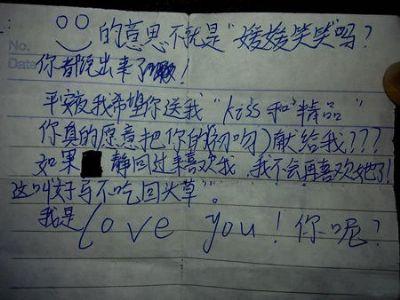 No.
的意思不就是"媛媛笑笑"吗?
Date
你都说出来了哦!
平安夜我希望你送我"kiss和精品"
你真的愿意把你的初吻)献给我???
如果 静回过来喜欢我,我不会再喜欢她了!
这叫好马不吃回头草"。
我是 love you! 你呢?